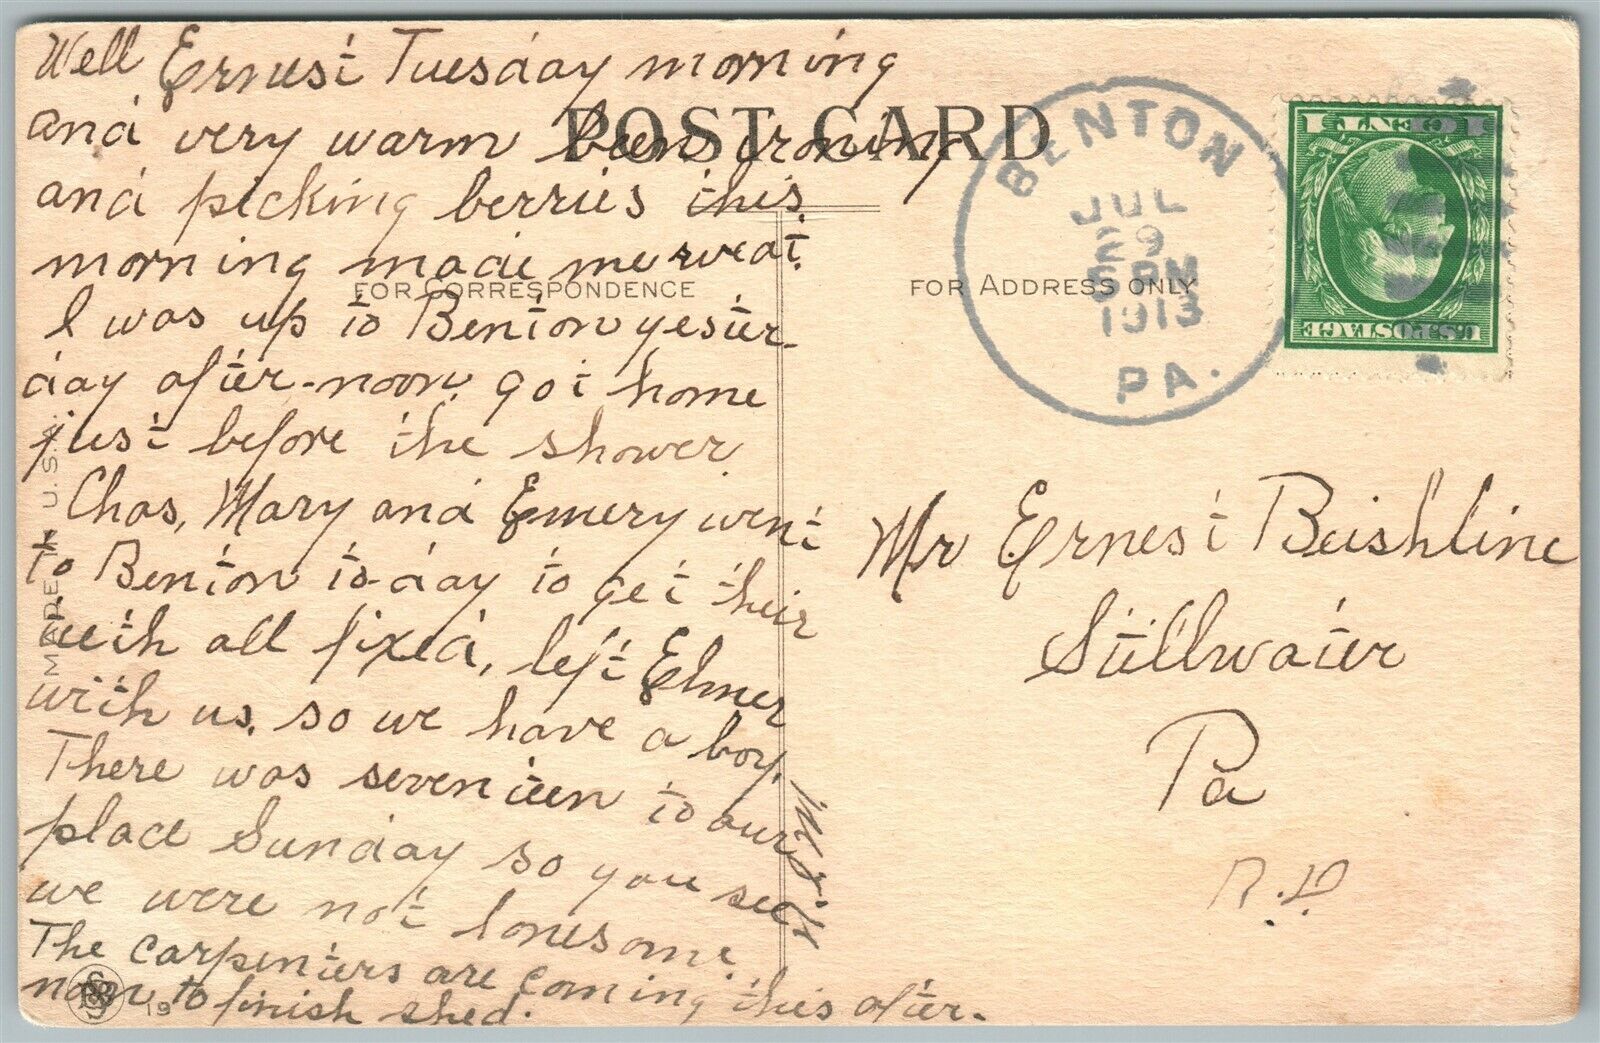 Well Ernest Tuesday morning
and very warm been ironing
and picking berries this
morning made me sweat.
I was up to Benton yester-
day after-noon. got home
just before the shower.
Chas, Mary and Emery went
to Benton to-day to get their
teeth all fixed, left Elmer
with us. so we have a boy.
There was seventeen to our
place Sunday so you see
we were not lonesome.
The carpenters are coming this after-
noon to finish shed.
POST CARD
FOR CORRESPONDENCE
FOR ADDRESS ONLY
MADE IN U.S.A.
19
BENTON
JUL
29
5 PM
1913
PA.
U.S. POSTAGE
1 CENT 1
Mr Ernest Beishline
Stillwater
Pa
R.D